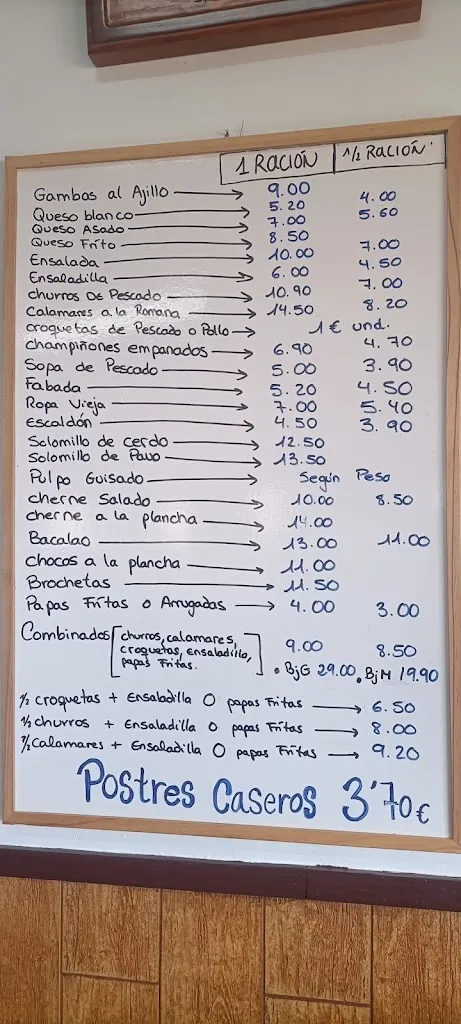 1 RACIÓN 1/2 RACIÓN
Gambas al Ajillo → 9.00
Queso blanco → 5.20 4.00
Queso Asado → 7.00 5.60
Queso Frito → 8.50
Ensalada → 10.00 7.00
Ensaladilla → 6.00 4.50
churros de Pescado → 10.90 7.00
Calamares a la Romana → 14.50 8.20
croquetas de Pescado o Pollo → 1€ und.
champiñones empanados → 6.90 4.70
Sopa de Pescado → 5.00 3.90
Fabada → 5.20 4.50
Ropa Vieja → 7.00 5.40
Escaldón → 4.50 3.90
Solomillo de cerdo → 12.50
Solomillo de Pavo → 13.50
Pulpo Guisado → Según Peso
cherne Salado → 10.00 8.50
cherne a la plancha → 14.00
Bacalao → 13.00 11.00
chocos a la plancha → 11.00
Brochetas → 11.50
Papas Fritas o Arrugadas → 4.00 3.00
Combinados [churros, calamares, 9.00 8.50
croquetas, ensaladilla,
papas Fritas.] • BjG 29.00 • BjM 19.90
1/2 croquetas + Ensaladilla O papas Fritas → 6.50
1/2 churros + Ensaladilla O papas Fritas → 8.00
1/2 Calamares + Ensaladilla O papas Fritas → 9.20
Postres Caseros 3'70€